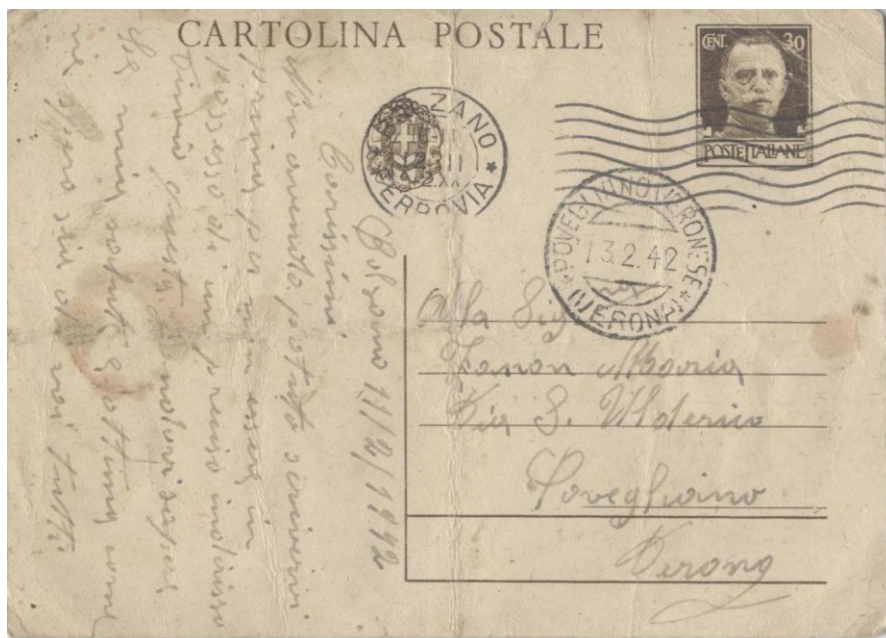 CARTOLINA POSTALE
CENT. 30
POSTE ITALIANE
BOLZANO
FERROVIA
POVEGLIANO VERONESE
13.2.42
(VERONA)
Alla Sig
Zanon Maria
Via S. Ulderico
Povegliano
Verona
Bolzano 11/2/1942
Carissimi
Non avendo potuto scrivervi
prima per non essere in
possesso di un preciso indirizzo
Vi invio questa farvi sapere
la mia salute è ottima come
ne spero sia di voi tutti